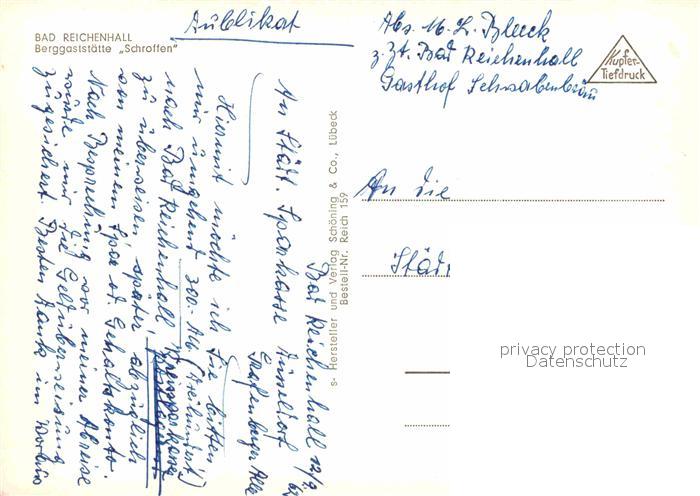 BAD REICHENHALL
Berggaststätte „Schroffen"
Bad Reichenhall 12/9
An Städt. Sparkasse Düsseldorf
Grafenberger Allee
Hiermit möchte ich Sie bitten
mir umgehend 300.- (Dreihundert)
nach Bad Reichenhall Kreissparkasse
zu überweisen, später abzüglich
von meinem Spar od Gehaltskonto.
Nach Besprechung vor meiner Abreise
wurde mir die Geldüberweisung
zugesichert. Besten Dank im Voraus
s- Hersteller und Verlag Schöning & Co., Lübeck
Bestell-Nr. Reich 159
Abs. M. L. Bleeck
z. Zt. Bad Reichenhall
Gasthof Schwabenbräu
Kupfer-
Tiefdruck
An die
Städt
privacy protection
Datenschutz